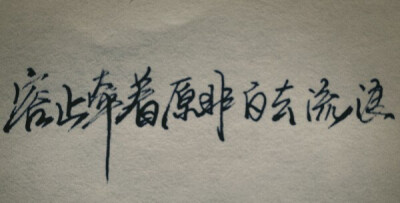 容止牵着原非白去流